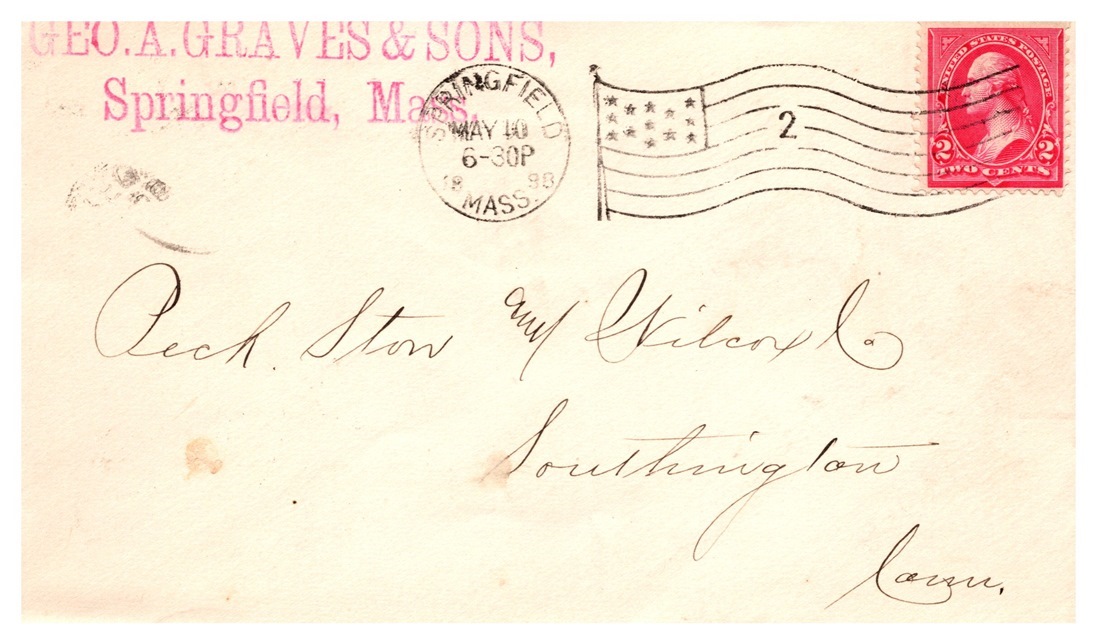 GEO. A. GRAVES & SONS,
Springfield, Mass.
SPRINGFIELD
MAY 10
6-30P
1898
MASS.
2
UNITED STATES POSTAGE
2 2
TWO CENTS
Peck. Stow and Wilcox Co
Southington
Conn.